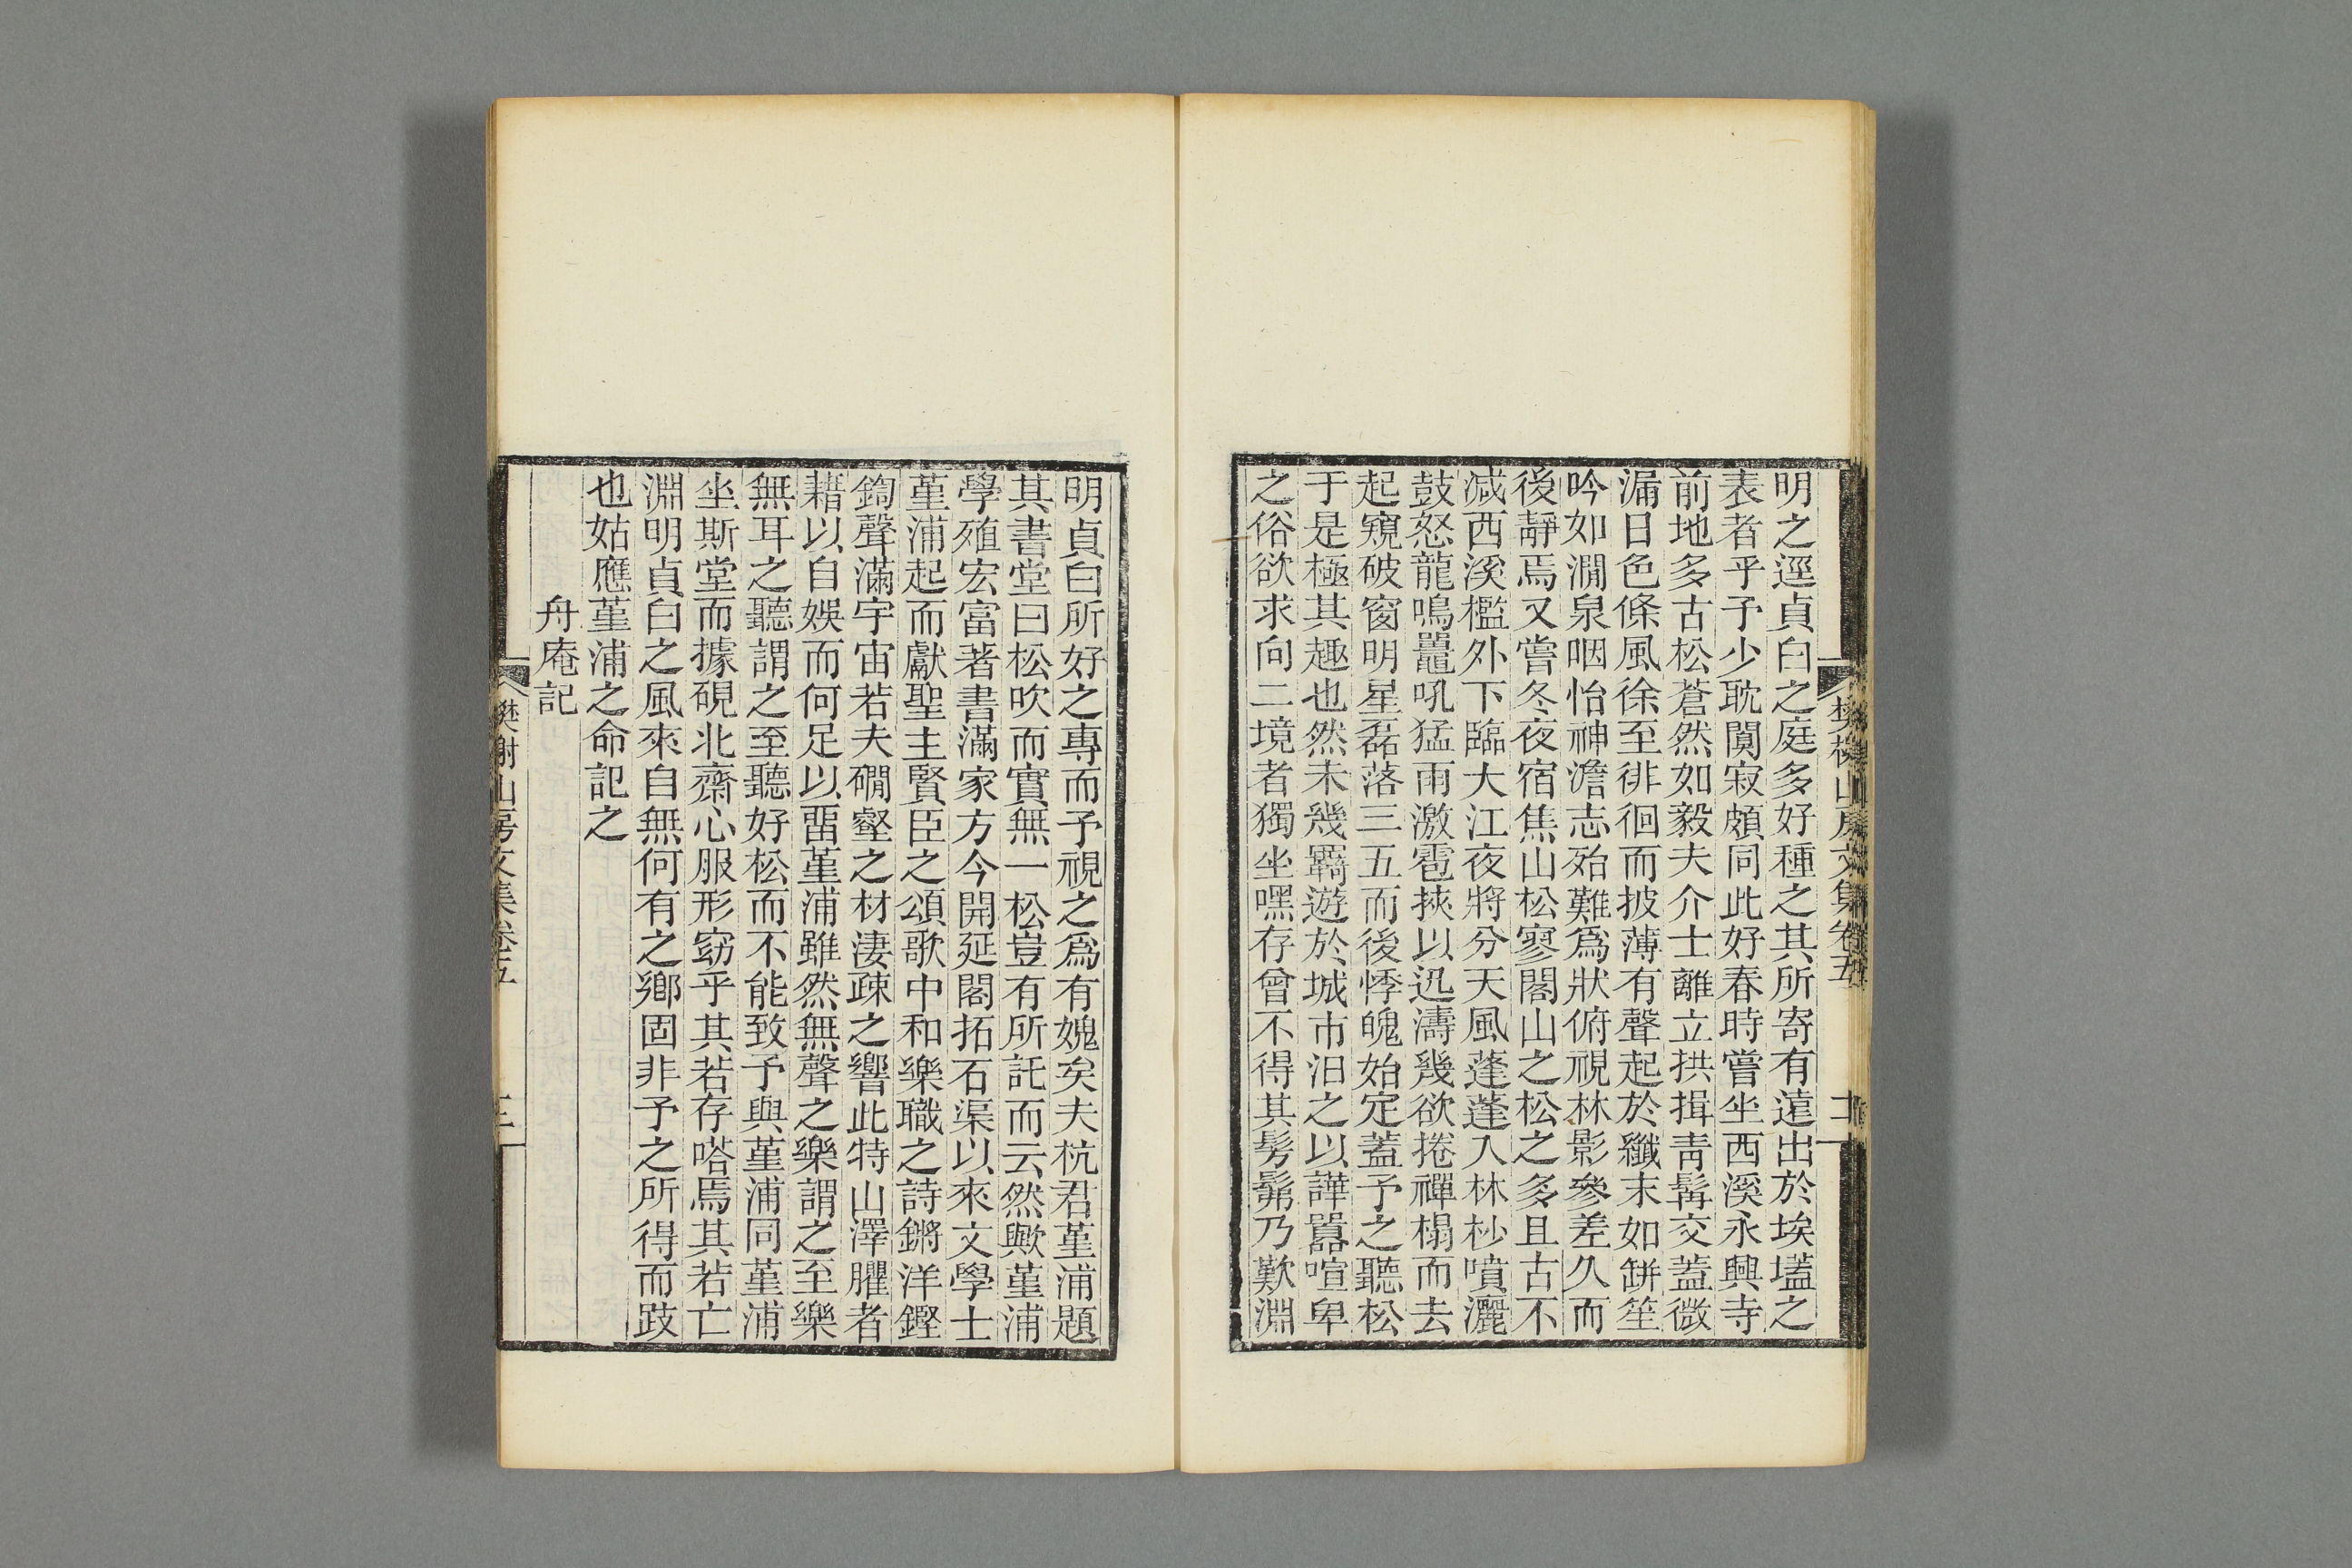 明之逕貞白之庭多好種之其所寄有遠出於埃壒之
表者乎予少耽闃寂頗同此好春時嘗坐西溪永興寺
前地多古松蒼然如毅夫介士離立拱揖青髯交蓋微
漏日色條風徐至徘徊而披薄有聲起於纖末如缾笙
吟如澗泉咽怡神澹志殆難爲狀俯視林影參差久而
後靜焉又嘗冬夜宿焦山松寥閣山之松之多且古不
減西溪檻外下臨大江夜將分天風蓬蓬入林杪噴灑
鼓怒龍鳴鼉吼猛雨激雹挾以迅濤幾欲捲禪榻而去
起窺破窗明星磊落三五而後悸魄始定蓋予之聽松
于是極其趣也然未幾羇遊於城市汨之以譁囂喧卑
之俗欲求向二境者獨坐嘿存曾不得其髣髴乃歎淵
明貞白所好之專而予視之爲有媿矣夫杭君堇浦題
其書堂曰松吹而實無一松豈有所託而云然歟堇浦
學殖宏富著書滿家方今開延閣拓石渠以來文學士
堇浦起而獻聖主賢臣之頌歌中和樂職之詩鏘洋鏗
鍧聲滿宇宙若夫磵壑之材淒疎之響此特山澤臞者
藉以自娛而何足以畱堇浦雖然無聲之樂謂之至樂
無耳之聽謂之至聽好松而不能致予與堇浦同堇浦
坐斯堂而據硯北齋心服形窈乎其若存嗒焉其若亡
淵明貞白之風來自無何有之鄉固非予之所得而跂
也姑應堇浦之命記之
舟庵記
樊榭山房文集卷五